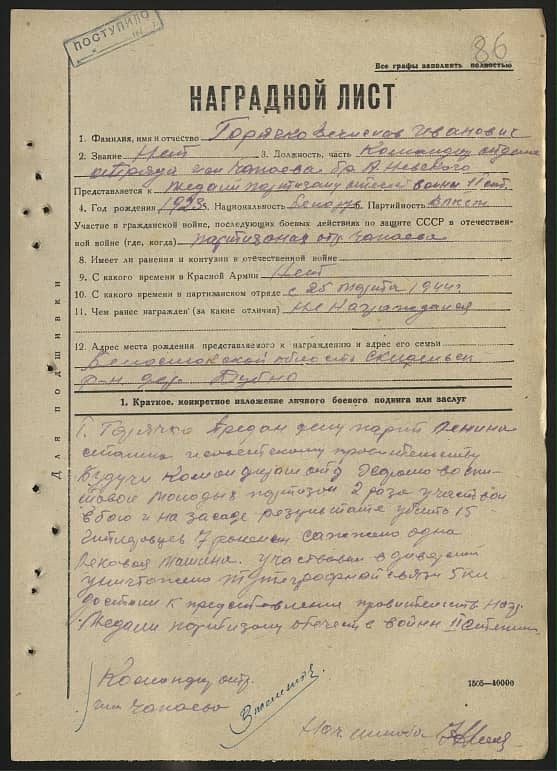 ПОСТУПИЛО
86
Все графы заполнять полностью
НАГРАДНОЙ ЛИСТ
1. Фамилия, имя и отчество Горячко Иванович
2. Звание Нет 3. Должность, часть Командир отделе
отряда им Чапаева бр А. Невского
Представляется к медали партизану войны II ст.
4. Год рождения 1923 5. Национальность белорус Партийность ВЛКСМ
Участие в гражданской войне, последующих боевых действиях по защите СССР и отечествен-
ной войне (где, когда) партизанах отр Чапаева
8. Имеет ли ранения и контузии в отечественной войне
9. С какого времени в Красной Армии Нет
10. С какого времени в партизанском отряде с 25 марта 1944г
11. Чем ранее награжден (за какие отличия) не награждался
12. Адрес места рождения представляемого к награждению и адрес его семьи
Белостокской область Скидельск
р-н дер. Дубно
Для подшивки
1. Краткое, конкретное изложение личного боевого подвига или заслуг
Т. Горячко предан делу парти Ленина
сталина и советскому правительству
Будучи командиром отд хорошо воспи
молодых партизан 2 раза участвов
в бою и на засаде результате убито 15
гитлеровцев 7 ранено сажжено одна
легковая машина. Участвовал в диверсии
уничтожено связи 5 км
достоин к предоставлении правительств наг.
Медали партизану отечеств войны II степени
Командир отр.
им Чапаева
1505—10000
Нач. штаба